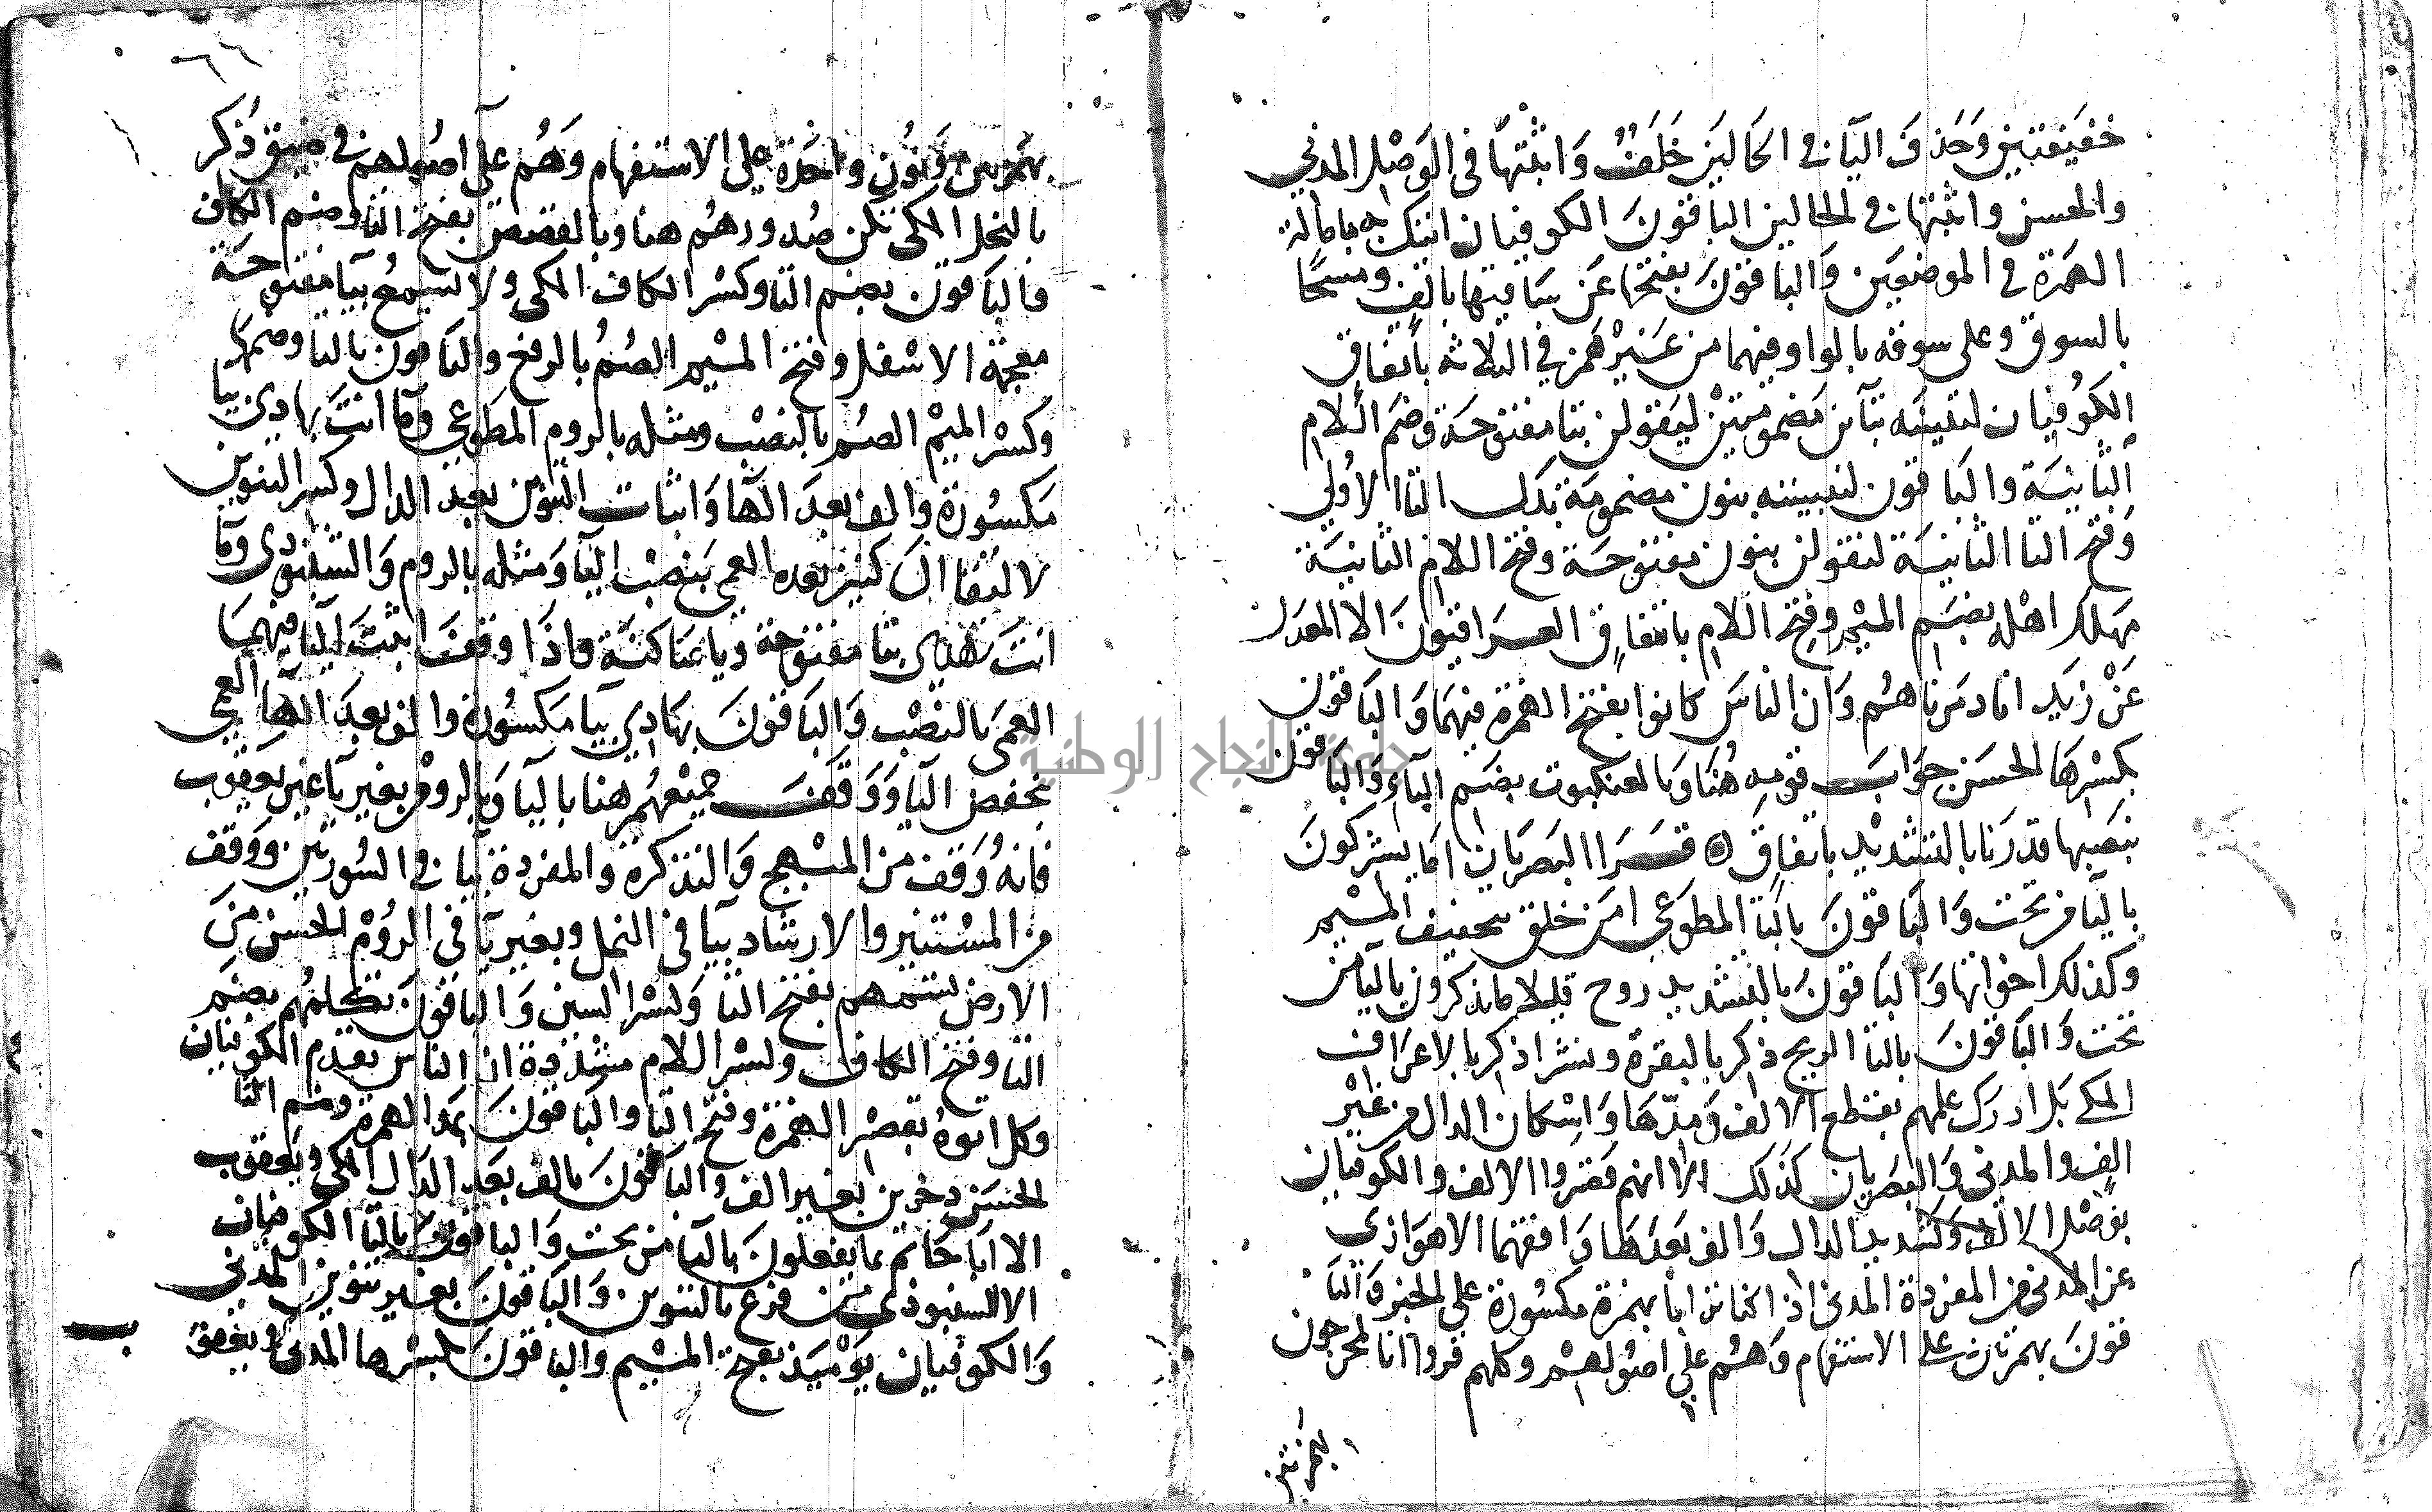 خفيفتين وحذف اليا في الحالين خلف واثبتها في الوصل المدني
والحسن واثبتها في الحالين الباقون الكوفيان اتيك به بامالة
الهمزة في الموضعين والباقون بفتحها عن ساقيها بالف ومسحا
بالسوق وعلى سوقه بالواو فيهما من غير همز في الثلاثه باتفاق
الكوفيان لتبيتنه بتاين مضمومتين ليقولن بتا مفتوحة وضم اللام
الثانية والباقون لنبيتنه بنون مضمومة بدل التا الاولي
وفتح التا الثانية لنقولن بنون مفتوحة وفتح اللام الثانية
مهلك اهله بضم الميم وفتح اللام باتفاق العراقيون الا المعدل
عن زيد انا دمرناهم وان الناس كانوا بفتح الهمزة فيهما والباقون
بكسرها الحسن جواب قومه هنا وبالعنكبوت بضم الباء والباقون
بنصبها قدرنا بالتشديد باتفاق ه قرا البصريان اما يشركون
باليا من تحت والباقون بالتا المطوعي امن خلق بتخفيف الميم
وكذلك اخواتها والباقون بالتشديد روح قليلا ما يذكرون باليا من
تحت والباقون بالتا الريح ذكر بالبقرة ونشرا ذكر بالاعراف
المكي بل ادرك علمهم بقطع الالف ومدها واسكان الدال من غير
الف والمدني والبصريان كذلك الا انهم قصروا الالف والكوفيان
بوصل الالف وتشديد الدال والف بعدها وافقهما الاهوازي
عن المدني من المفردة المدني اذا كنا ترابا بهمزة مكسورة على الخبر والبا
قون بهمزتين على الاستفهام وهم على اصولهم وكلهم قروا انا لمخرجون
بهمزتين
٦٦
بهمزتين ونون واحدة على الاستفهام وهم على اصولهم في ضيق ذكر
بالنحل المكي تكن صدورهم هنا وبالقصص بفتح التا وضم الكاف
والباقون بضم التا وكسر الكاف المكي ولا يسمع بيا مفتوحة
معجمة الاسفل وفتح الميم الصم بالرفع والباقون بالتا وضمها
وكسر الميم الصم بالنصب ومثله بالروم المطوعي وما انت بهادي ببا
مكسورة والف بعد الها واثبات التنوين بعد الدال وكسر التنوين
لالتقا الساكنين بعده العمي بنصب اليا ومثله بالروم والشنبوذي وما
انت تهدي بتا مفتوحة ويا ساكنة فاذا وقف اثبت اليا فيهما
العمي بالنصب والباقون بهادي ببا مكسورة والف بعد الها العمي
بخفض اليا ووقف جميعهم هنا باليا وبالروم بغير يا غير يعقوب
فانه وقف من المبهج والتذكرة والمفردة بيا في السورتين ووقف
من المستنير والارشاد بيا في النمل وبغير يا في الروم الحسن من
الارض تسمهم بفتح التا وكسر السين والباقون تكلمهم بضم
التا وفتح الكاف وكسر اللام مشددة ان الناس تقدم الكوفيان
وكل اتوه بقصر الهمزة وفتح التا والباقون بمد الهمزة وضم التا
الحسن دخرين بغير الف والباقون بالف بعد الدال المكي ويعقوب
الا ابا حاتم بما يفعلون باليا من تحت والباقون بالتا الكوفيان
الا الشنبوذي من فزع بالتنوين والباقون بغير تنوين المدني
والكوفيان يومئذ بفتح الميم والباقون بكسرها المدني ويعقوب
جامعة النجاح الوطنية